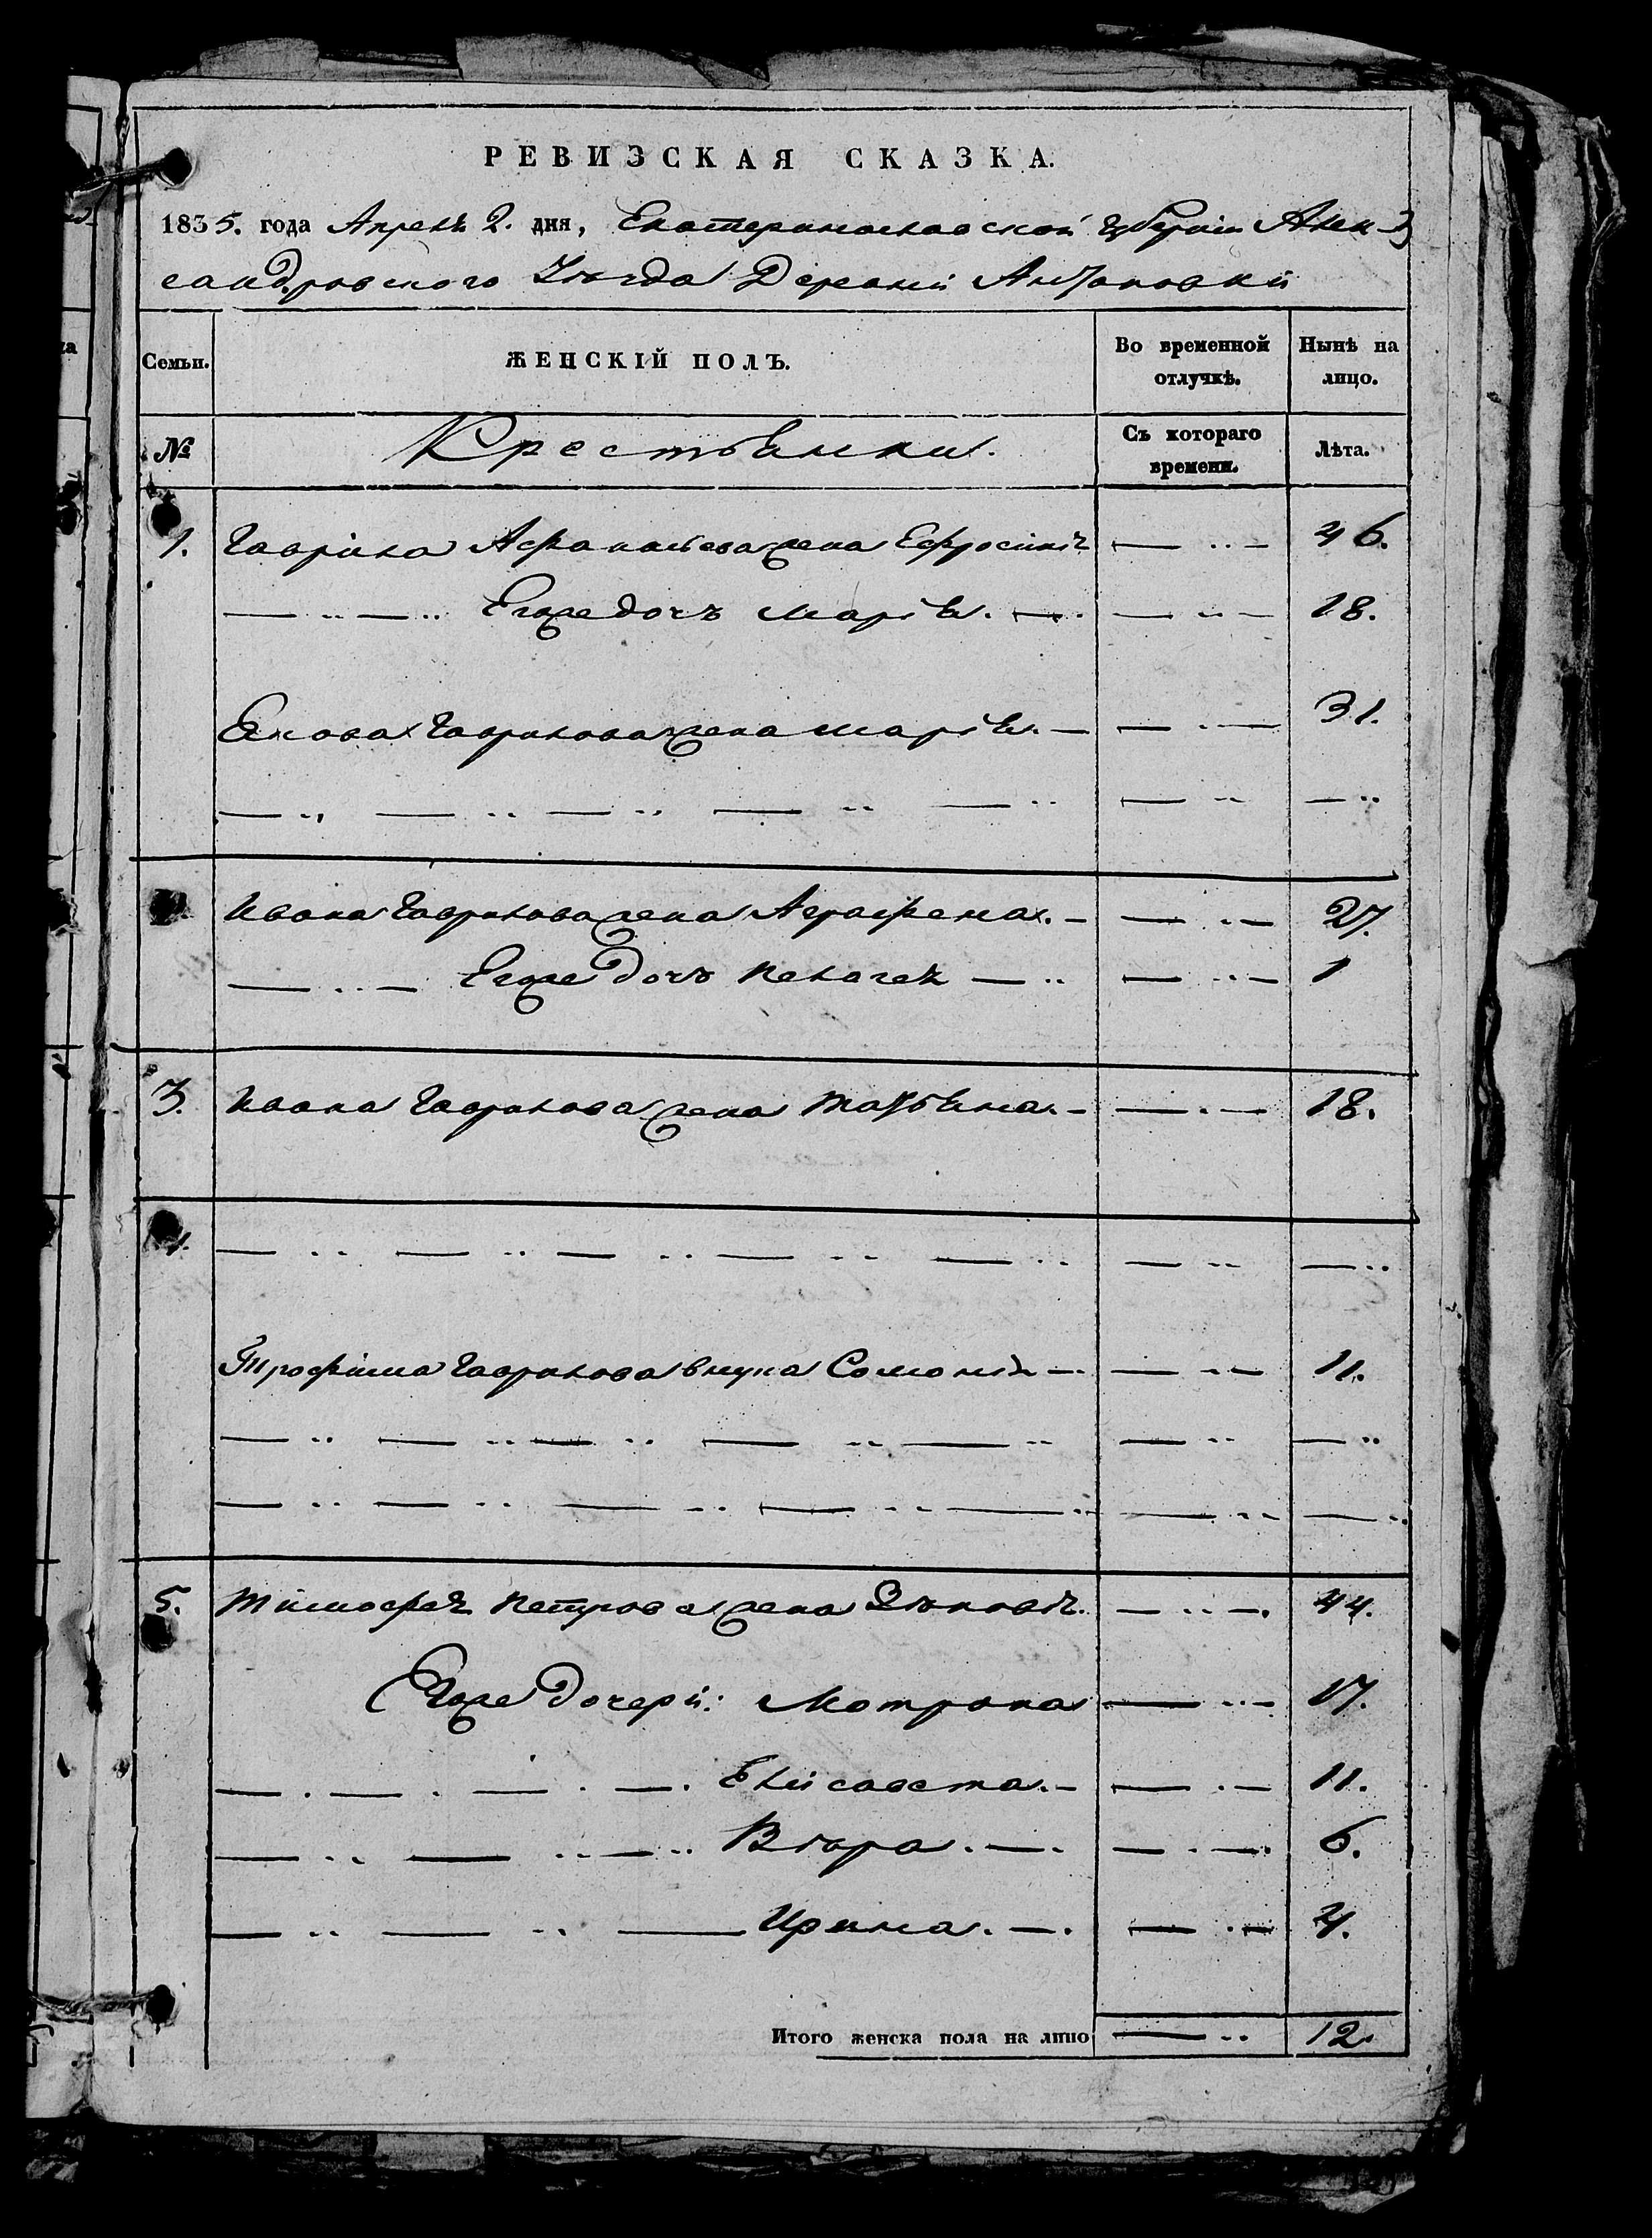 РЕВИЗСКАЯ СКАЗКА.
1835. года Апреля 2. дня, Екатеринославской губернiи Алек-
сандровского Уѣзда Деревнi Антоновки
Семьи.
ЖЕНСКІЙ ПОЛЪ.
Во временной отлучкѣ.
Нынѣ на лицо.
№
Крестьянки.
Съ котораго времени.
Лѣта.
1. Гаврiла Афанасьева жена Ефросинiя — 46.
Егоже дочь Марiя. — 18.
Якова Гаврилова жена Марiя. — 31.
Ивана Гаврилова жена Аграфена. — 27.
Егоже дочь Пелагея — 1
3. Ивана Гаврилова жена Татьяна. — 18.
4.
Трофiма Гаврилова внука Соломiя — 11.
5. Тiмофея Петрова жена Зѣновiя. — 44.
Егоже дочерi: Мотрона — 17.
Елiсавета. — 11.
Вѣра. — 6.
Ирина. — 4.
Итого женска пола на лицо — 12.